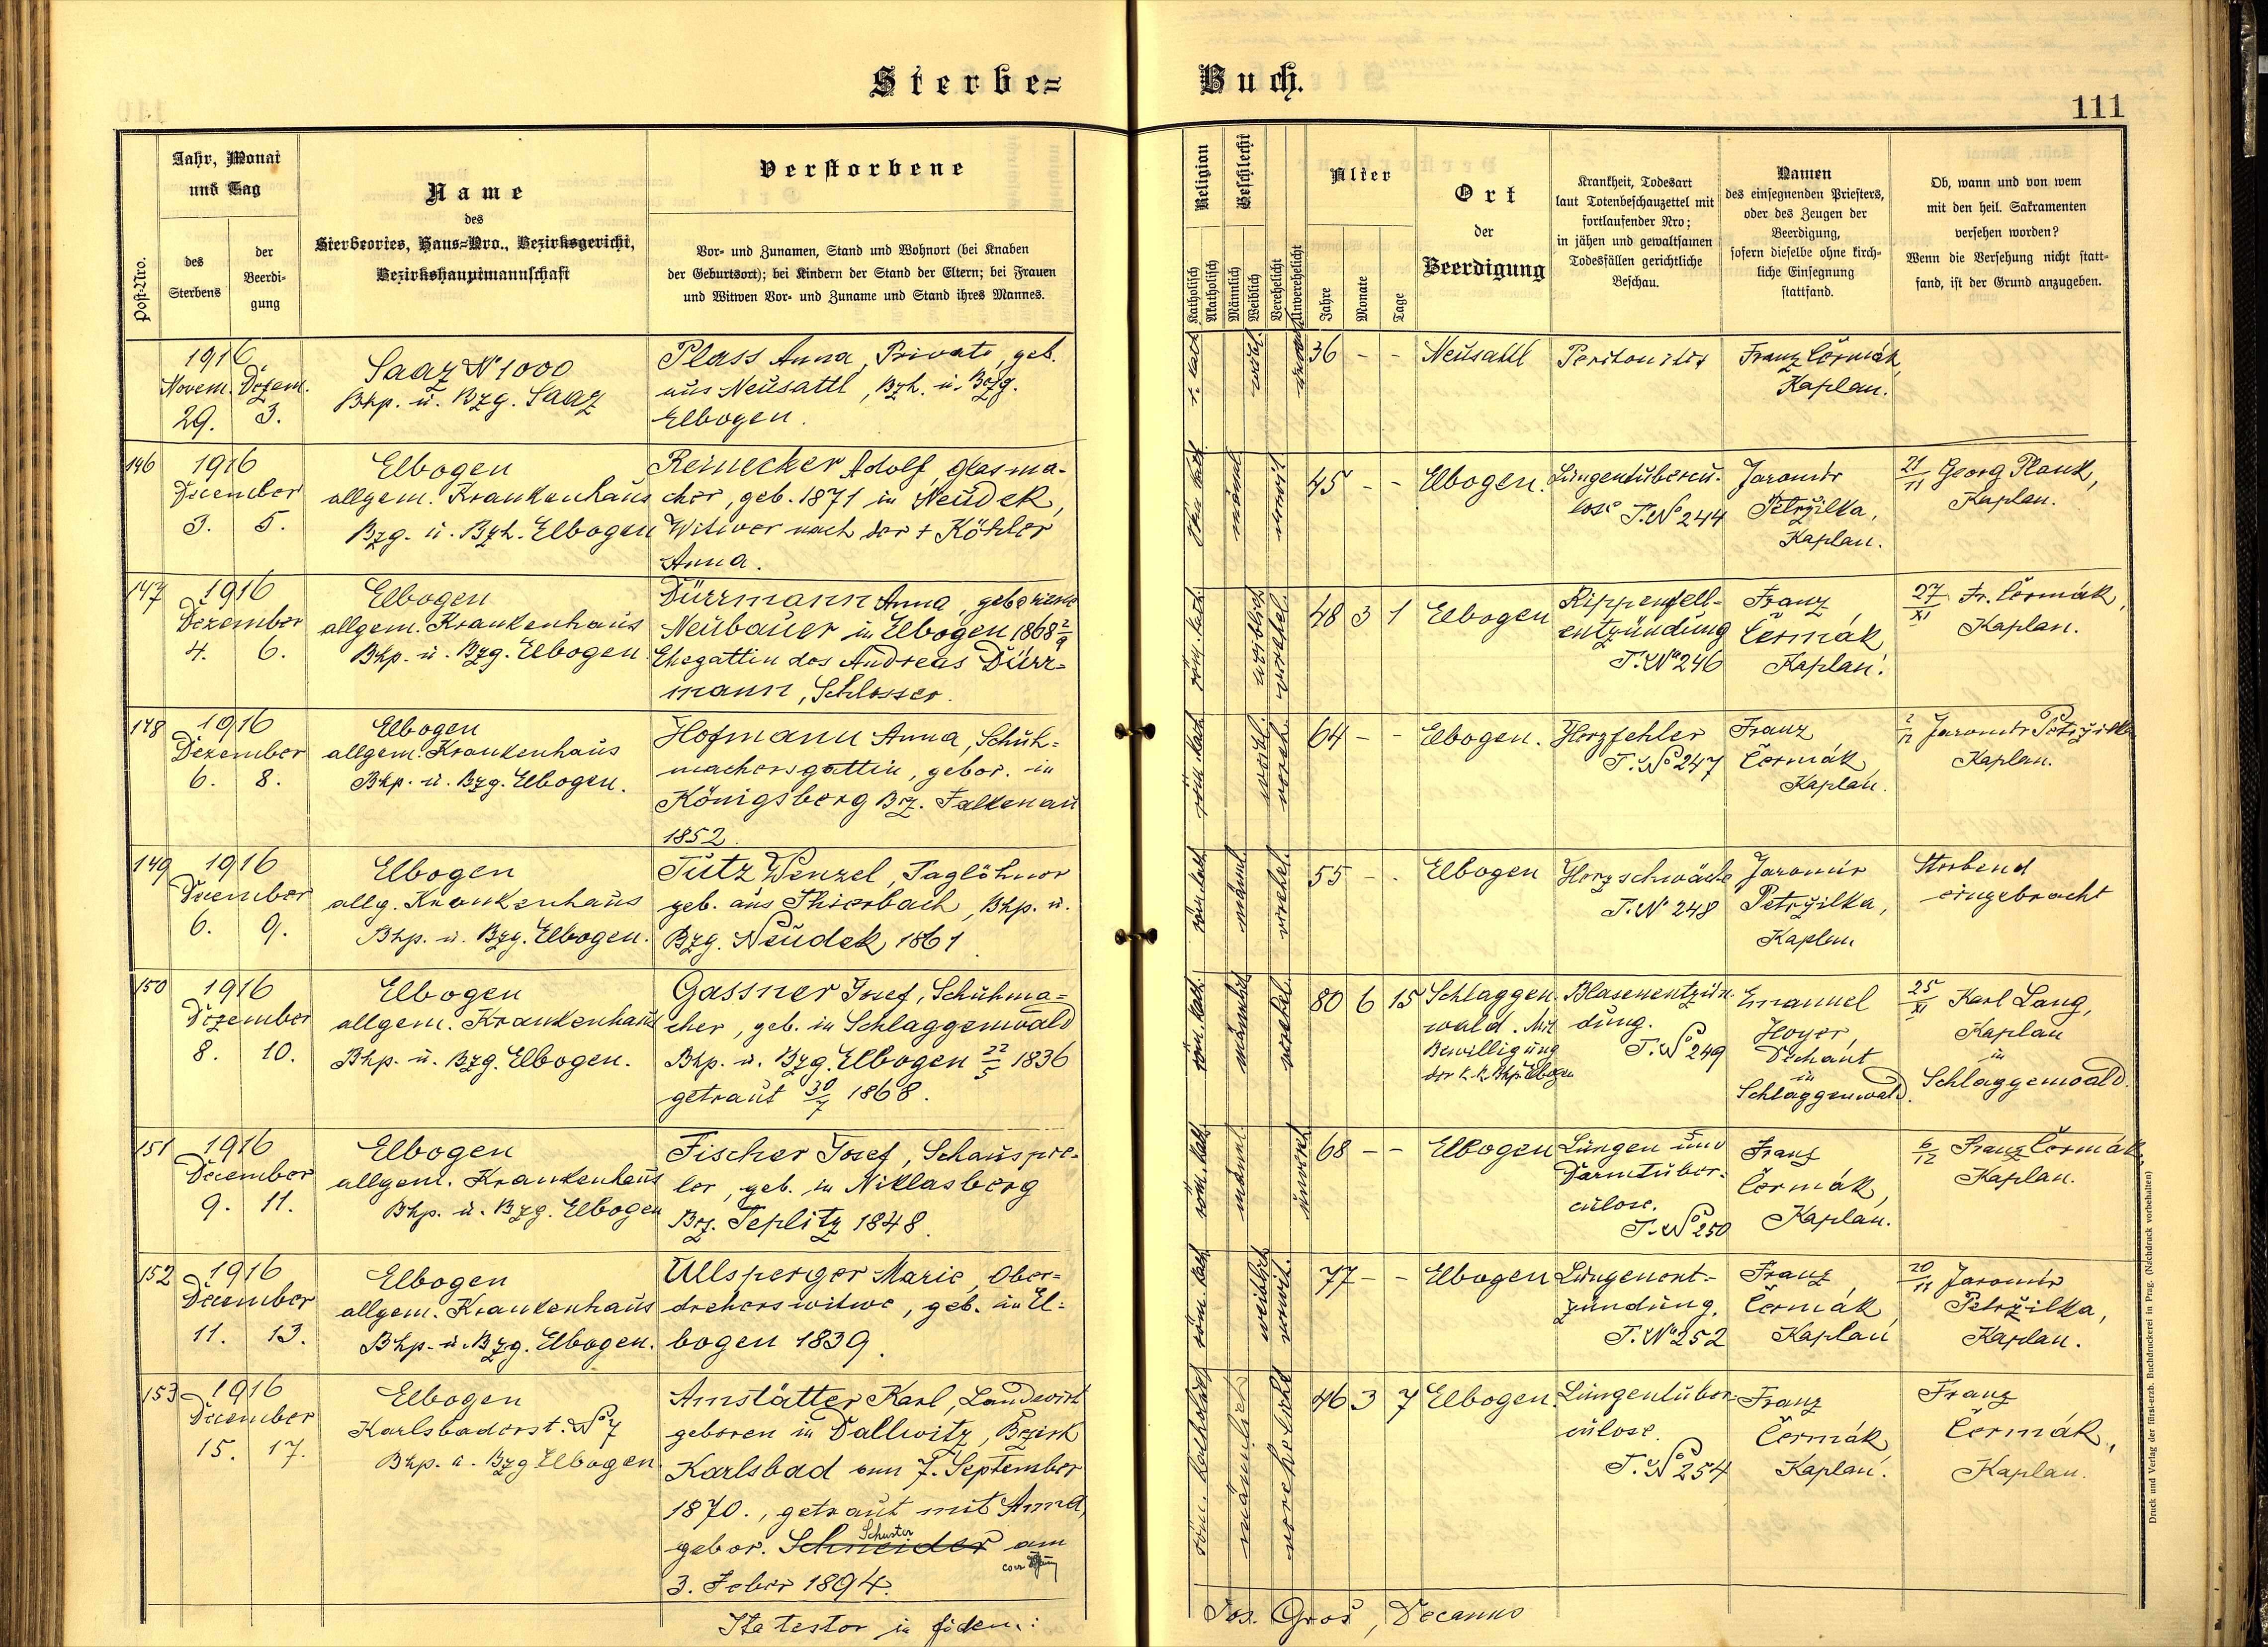 Sterbe=
Buch.
111
Post-Nro.
Jahr, Monat
und Tag
des
Sterbens
der
Beerdi-
gung
Name
des
Sterbeortes, Haus-Nro., Bezirksgericht,
Bezirkshauptmannschaft
Verstorbene
Vor- und Zunamen, Stand und Wohnort (bei Knaben
der Geburtsort); bei Kindern der Stand der Eltern; bei Frauen
und Witwen Vor- und Zuname und Stand ihres Mannes.
Religion
Katholisch
Akatholisch
Geschlecht
Männlich
Weiblich
Verehelicht
Unverehelicht
Alter
Jahre
Monate
Tage
Ort
der
Beerdigung
Krankheit, Todesart
laut Totenbeschauzettel mit
fortlaufender Nro;
in jähen und gewaltsamen
Todesfällen gerichtliche
Beschau.
Namen
des einsegnenden Priesters,
oder des Zeugen der
Beerdigung,
sofern dieselbe ohne kirch-
liche Einsegnung
stattfand.
Ob, wann und von wem
mit den heil. Sakramenten
versehen worden?
Wenn die Versehung nicht statt-
fand, ist der Grund anzugeben.
1916
Novem. Dezem.
29. 3.
Saaz No 1000
Bhp. u. Bzg. Saaz
Plass Anna, Private, geb.
aus Neusattl, Bzh. u. Bzg.
Elbogen.
r. kath.
36 - -
Neusattl
Peritonitis
Franz Čermák,
Kaplan.
146
1916
December
3. 5.
Elbogen
allgem. Krankenhaus
Bzg. u. Bzh. Elbogen
Reinecker Adolf, Glasma-
cher, geb. 1871 in Neudek,
Witwer nach der + Köhler
Anna.
männl.
verwit.
45 - -
Elbogen.
Lungentubercu-
lose T. No 244
Jaromir
Petržilka,
Kaplan.
21/11 Georg Plank,
Kaplan.
147
1916
Dezember
4. 6.
Elbogen
allgem. Krankenhaus
Bhp. u. Bzg. Elbogen.
Dürrmann Anna, geborene
Neubauer in Elbogen 1868 2/9
Ehegattin des Andreas Dürr-
mann, Schlosser.
röm. kath.
weiblich
verehel.
48 3 1
Elbogen
Rippenfell-
entzündung
T. No 246
Franz
Čermák,
Kaplan.
27/XI Fr. Čermák,
Kaplan.
148
1916
Dezember
6. 8.
Elbogen
allgem. Krankenhaus
Bhp. u. Bzg. Elbogen.
Hofmann Anna, Schuh-
machersgattin, gebor. in
Königsberg Bz. Falkenau
1852.
röm. kath.
weibl.
verehl.
64 - -
Elbogen.
Herzfehler
T. No 247
Franz
Čermák,
Kaplan.
2/12 Jaromir Petržilka
Kaplan.
149
1916
December
6. 9.
Elbogen
allg. Krankenhaus
Bhp. u. Bzg. Elbogen.
Tutz Wenzel, Taglöhner
geb. aus Thierbach, Bhp. u.
Bzg. Neudek 1861
röm. kath.
männl.
verehel.
55 - -
Elbogen
Herzschwäche
T. No 248
Jaromir
Petržilka,
Kaplan
Sterbend
eingebracht
150
1916
Dezember
8. 10.
Elbogen
allgem. Krankenhaus
Bhp. u. Bzg. Elbogen.
Gassner Josef, Schuhma-
cher, geb. in Schlaggenwald
Bhp. u. Bzg. Elbogen 22/5 1836
getraut 30/7 1868.
röm. kath.
männlich
verehel.
80 6 15
Schlaggen-
wald. Mit
Bewilligung
der k. k. Bhp. Elbogen
Blasenentzün-
dung.
T. No 249
Emanuel
Hoyer,
Dechant
in
Schlaggenwald.
25/XI Karl Lang,
Kaplan
in
Schlaggenwald.
151
1916
December
9. 11.
Elbogen
allgem. Krankenhaus
Bhp. u. Bzg. Elbogen
Fischer Josef, Schauspie-
ler, geb. in Niklasberg
Bz. Teplitz 1848.
röm. kath.
männl.
unvereh.
68 - -
Elbogen
Lungen und
Darmtuber-
culose.
T. No 250
Franz
Čermák,
Kaplan.
6/12 Franz Čermák,
Kaplan.
152
1916
December
11. 13.
Elbogen
allgem. Krankenhaus
Bhp. u. Bzg. Elbogen.
Ullsperger Marie, Ober-
dreherswitwe, geb. in El-
bogen 1839.
röm. kath.
weiblich
verwit.
77 - -
Elbogen
Lungenent-
zündung.
T. No 252
Franz
Čermák,
Kaplan
20/11 Jaromir
Petržilka,
Kaplan.
153
1916
December
15. 17.
Elbogen
Karlsbaderst. No 7
Bhp. u. Bzg Elbogen.
Amstätter Karl, Landwirt
geboren in Dallwitz, Bezirk
Karlsbad am 7. September
1870., getraut mit Anna,
Schuster
gebor. Schneider am
3. Feber 1894.
röm. katholisch
männlich
verehelicht
46 3 7
Elbogen.
Lungentuber-
culose.
T. No 254
Franz
Čermák,
Kaplan.
Franz
Čermák,
Kaplan.
Ita testor in fidem:
Jos. Gros, Decanus
Druck und Verlag der fürst-erzb. Buchdruckerei in Prag. (Nachdruck vorbehalten)